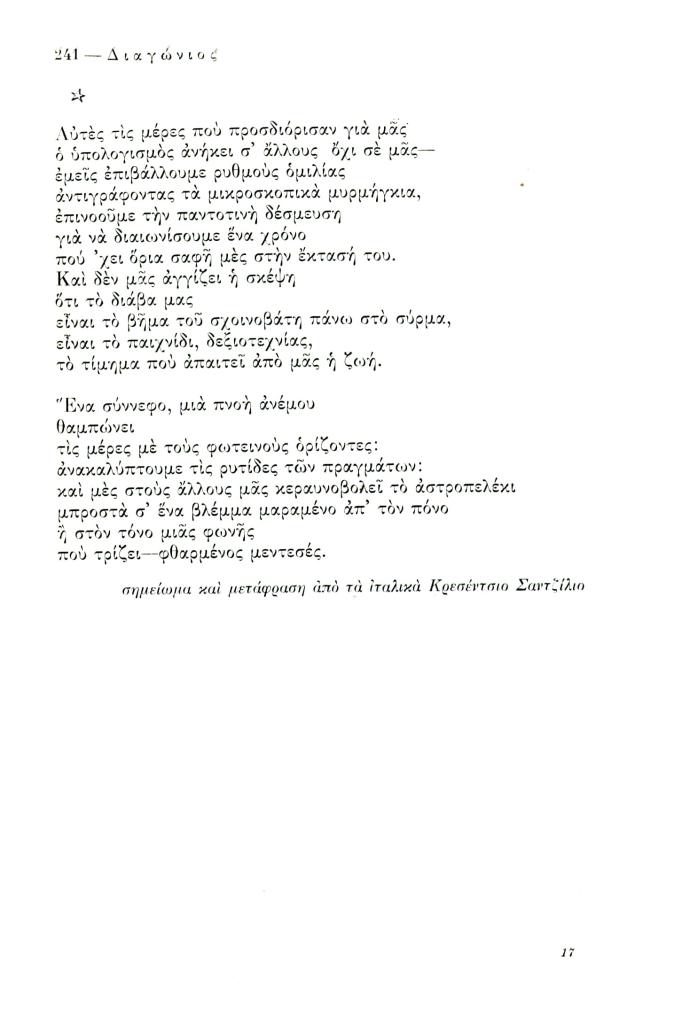 241 — Διαγώνιος
Αὐτὲς τὶς μέρες ποὺ προσδιόρισαν γιὰ μᾶς
ὁ ὑπολογισμὸς ἀνήκει σ' ἄλλους ὄχι σὲ μᾶς—
ἐμεῖς ἐπιβάλλουμε ρυθμοὺς ὁμιλίας
ἀντιγράφοντας τὰ μικροσκοπικὰ μυρμήγκια,
ἐπινοοῦμε τὴν παντοτινὴ δέσμευση
γιὰ νὰ διαιωνίσουμε ἕνα χρόνο
πού 'χει ὅρια σαφῆ μὲς στὴν ἔκτασή του.
Καὶ δὲν μᾶς ἀγγίζει ἡ σκέψη
ὅτι τὸ διάβα μας
εἶναι τὸ βῆμα τοῦ σχοινοβάτη πάνω στὸ σύρμα,
εἶναι τὸ παιχνίδι, δεξιοτεχνίας,
τὸ τίμημα ποὺ ἀπαιτεῖ ἀπὸ μᾶς ἡ ζωή.
Ἕνα σύννεφο, μιὰ πνοὴ ἀνέμου
θαμπώνει
τὶς μέρες μὲ τοὺς φωτεινοὺς ὁρίζοντες:
ἀνακαλύπτουμε τὶς ρυτίδες τῶν πραγμάτων:
καὶ μὲς στοὺς ἄλλους μᾶς κεραυνοβολεῖ τὸ ἀστροπελέκι
μπροστὰ σ' ἕνα βλέμμα μαραμένο ἀπ' τὸν πόνο
ἢ στὸν τόνο μιᾶς φωνῆς
ποὺ τρίζει—φθαρμένος μεντεσές.
σημείωμα καὶ μετάφραση ἀπὸ τὰ ἰταλικὰ Κρεσέντσιο Σαντζίλιο
17